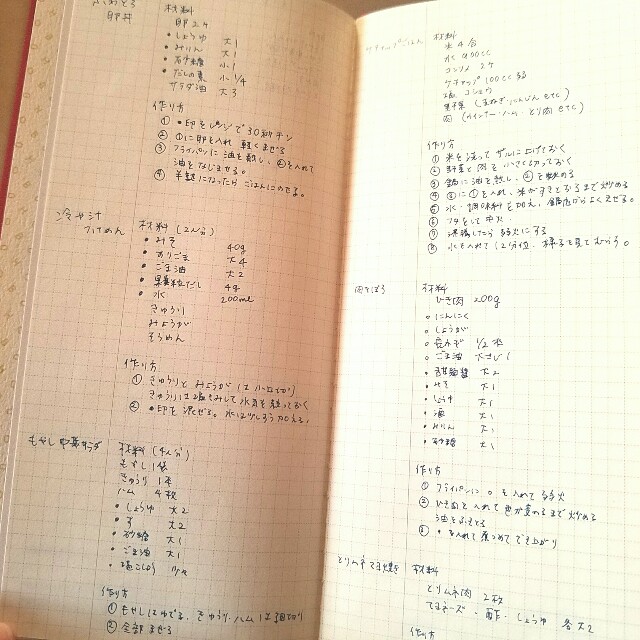 ふわとろ
卵丼
材料
卵 2ケ
• しょうゆ 大1
• みりん 大1
• 砂糖 小1
• だしの素 小1/4
サラダ油 大3
作り方
① •印をレンジで30秒チン
② ①に卵を入れ 軽くまぜる
③ フライパンに油を熱し、②を入れて
油をなじませる。
④ 半熟になったらごはんにのせる。
冷や汁
つけめん
材料 (2人分)
• みそ 40g
• すりごま 大4
• ごま油 大2
• 顆粒だし 4g
• 水 200ml
きゅうり
みょうが
そうめん
作り方
① きゅうりとみょうがは小口切り
きゅうりは塩もみして水気を絞っておく
② •印を混ぜる。水は少しずつ加える。
もやし中華サラダ
材料 (4人分)
もやし 1袋
きゅうり 1本
ハム 4枚
• しょうゆ 大2
• す 大2
• 砂糖 大1
• ごま油 大1
• 塩こしょう 少々
作り方
① もやしはゆでる。きゅうり、ハムは細切り
② 全部まぜる
ケチャップごはん
材料
米 4合
水 900cc
コンソメ 2ケ
ケチャップ 100cc弱
塩、コショウ
野菜 (玉ねぎ・にんじんetc)
肉 (ウインナー・ハム・とり肉etc)
作り方
① 米を洗ってザルに上げておく
② 野菜と肉を小さく切っておく
③ 鍋に油を熱し、②を炒める
④ ③に①を入れ、米がすきとおるまで炒める
⑤ 水・調味料を加え、鍋底からよくまぜる。
⑥ フタをして中火
⑦ 沸騰したら弱火にする
⑧ 12分位、様子を見てむらす。
肉そぼろ
材料
ひき肉 200g
○ にんにく
○ しょうが
○ 長ねぎ 1/2本
○ ごま油 大さじ1
• 甜麺醤 大2
• みそ 大1
• しょうゆ 大1
• 酒 大1
• みりん 大1
• 砂糖 大1
作り方
① フライパンに ○を入れて弱火
② ひき肉を入れて色が変わるまで炒める
油をふきとる
③ •を入れて煮つめてでき上がり
とりムネマヨ焼き
材料
とりムネ肉 2枚
マヨネーズ・酢・しょうゆ 各大2
作り方